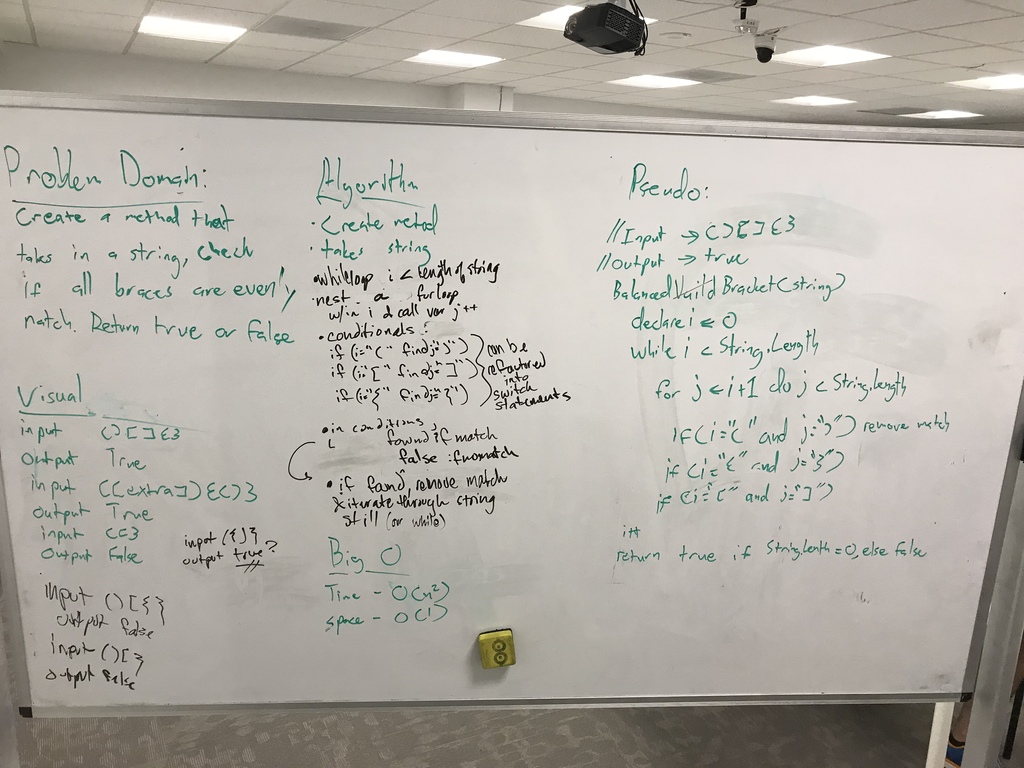 Problem Domain:
Create a method that
takes in a string, check
if all braces are evenly
match. Return true or false
Visual
input () [ ] { }
Output True
input (([extra]) { () }
Output True
input ( [ }
Output False
input ( { ] }
output true ?
input () [ { }
output false
input () [ }
output false
Algorithm
· Create method
· takes string
• while loop i < length of string
• nest a for loop
w/in i & call var j++
• conditionals :
if (i="(" find j=")")
if (i="[" find j="]")
if (i="{" find j="}")
can be
refactored
into
switch
statements
• in conditions,
found if match
false if no match
• if found, remove match
& iterate through string
still (or while)
Big O
Time - O(n²)
space - O(1)
Pseudo:
// Input → () [ ] { }
// Output → true
Balanced Vaild Bracket (string)
declare i ← 0
while i < String.Length
for j ← i+1 do j < String.length
if (i="(" and j=")") remove match
if (i="{" and j="}")
if (i="[" and j="]")
i++
return true if String.Lenth = 0, else false